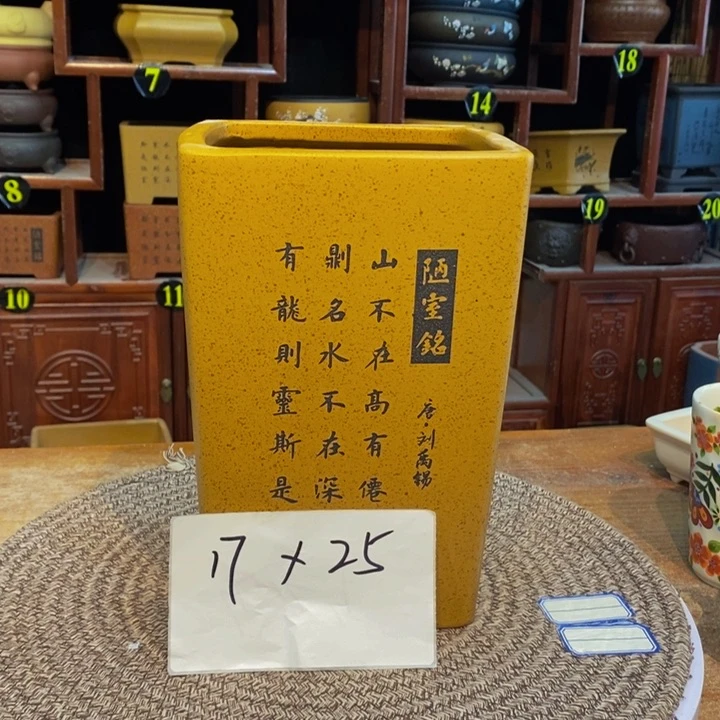 陋室銘
唐·刘禹锡
山不在髙有僊
則名水不在深
有龍則靈斯是
17 × 25
7
14
18
8
19
20
10
11